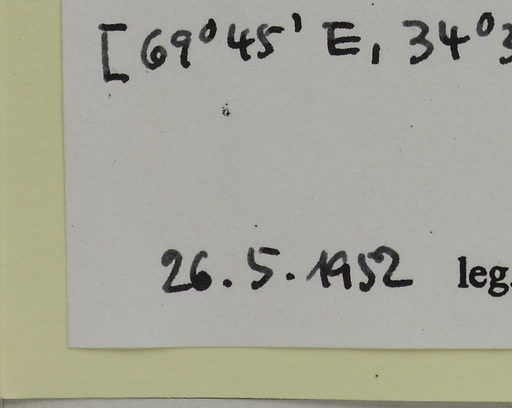 [69°45' E, 34°3
26.5.1952 leg.